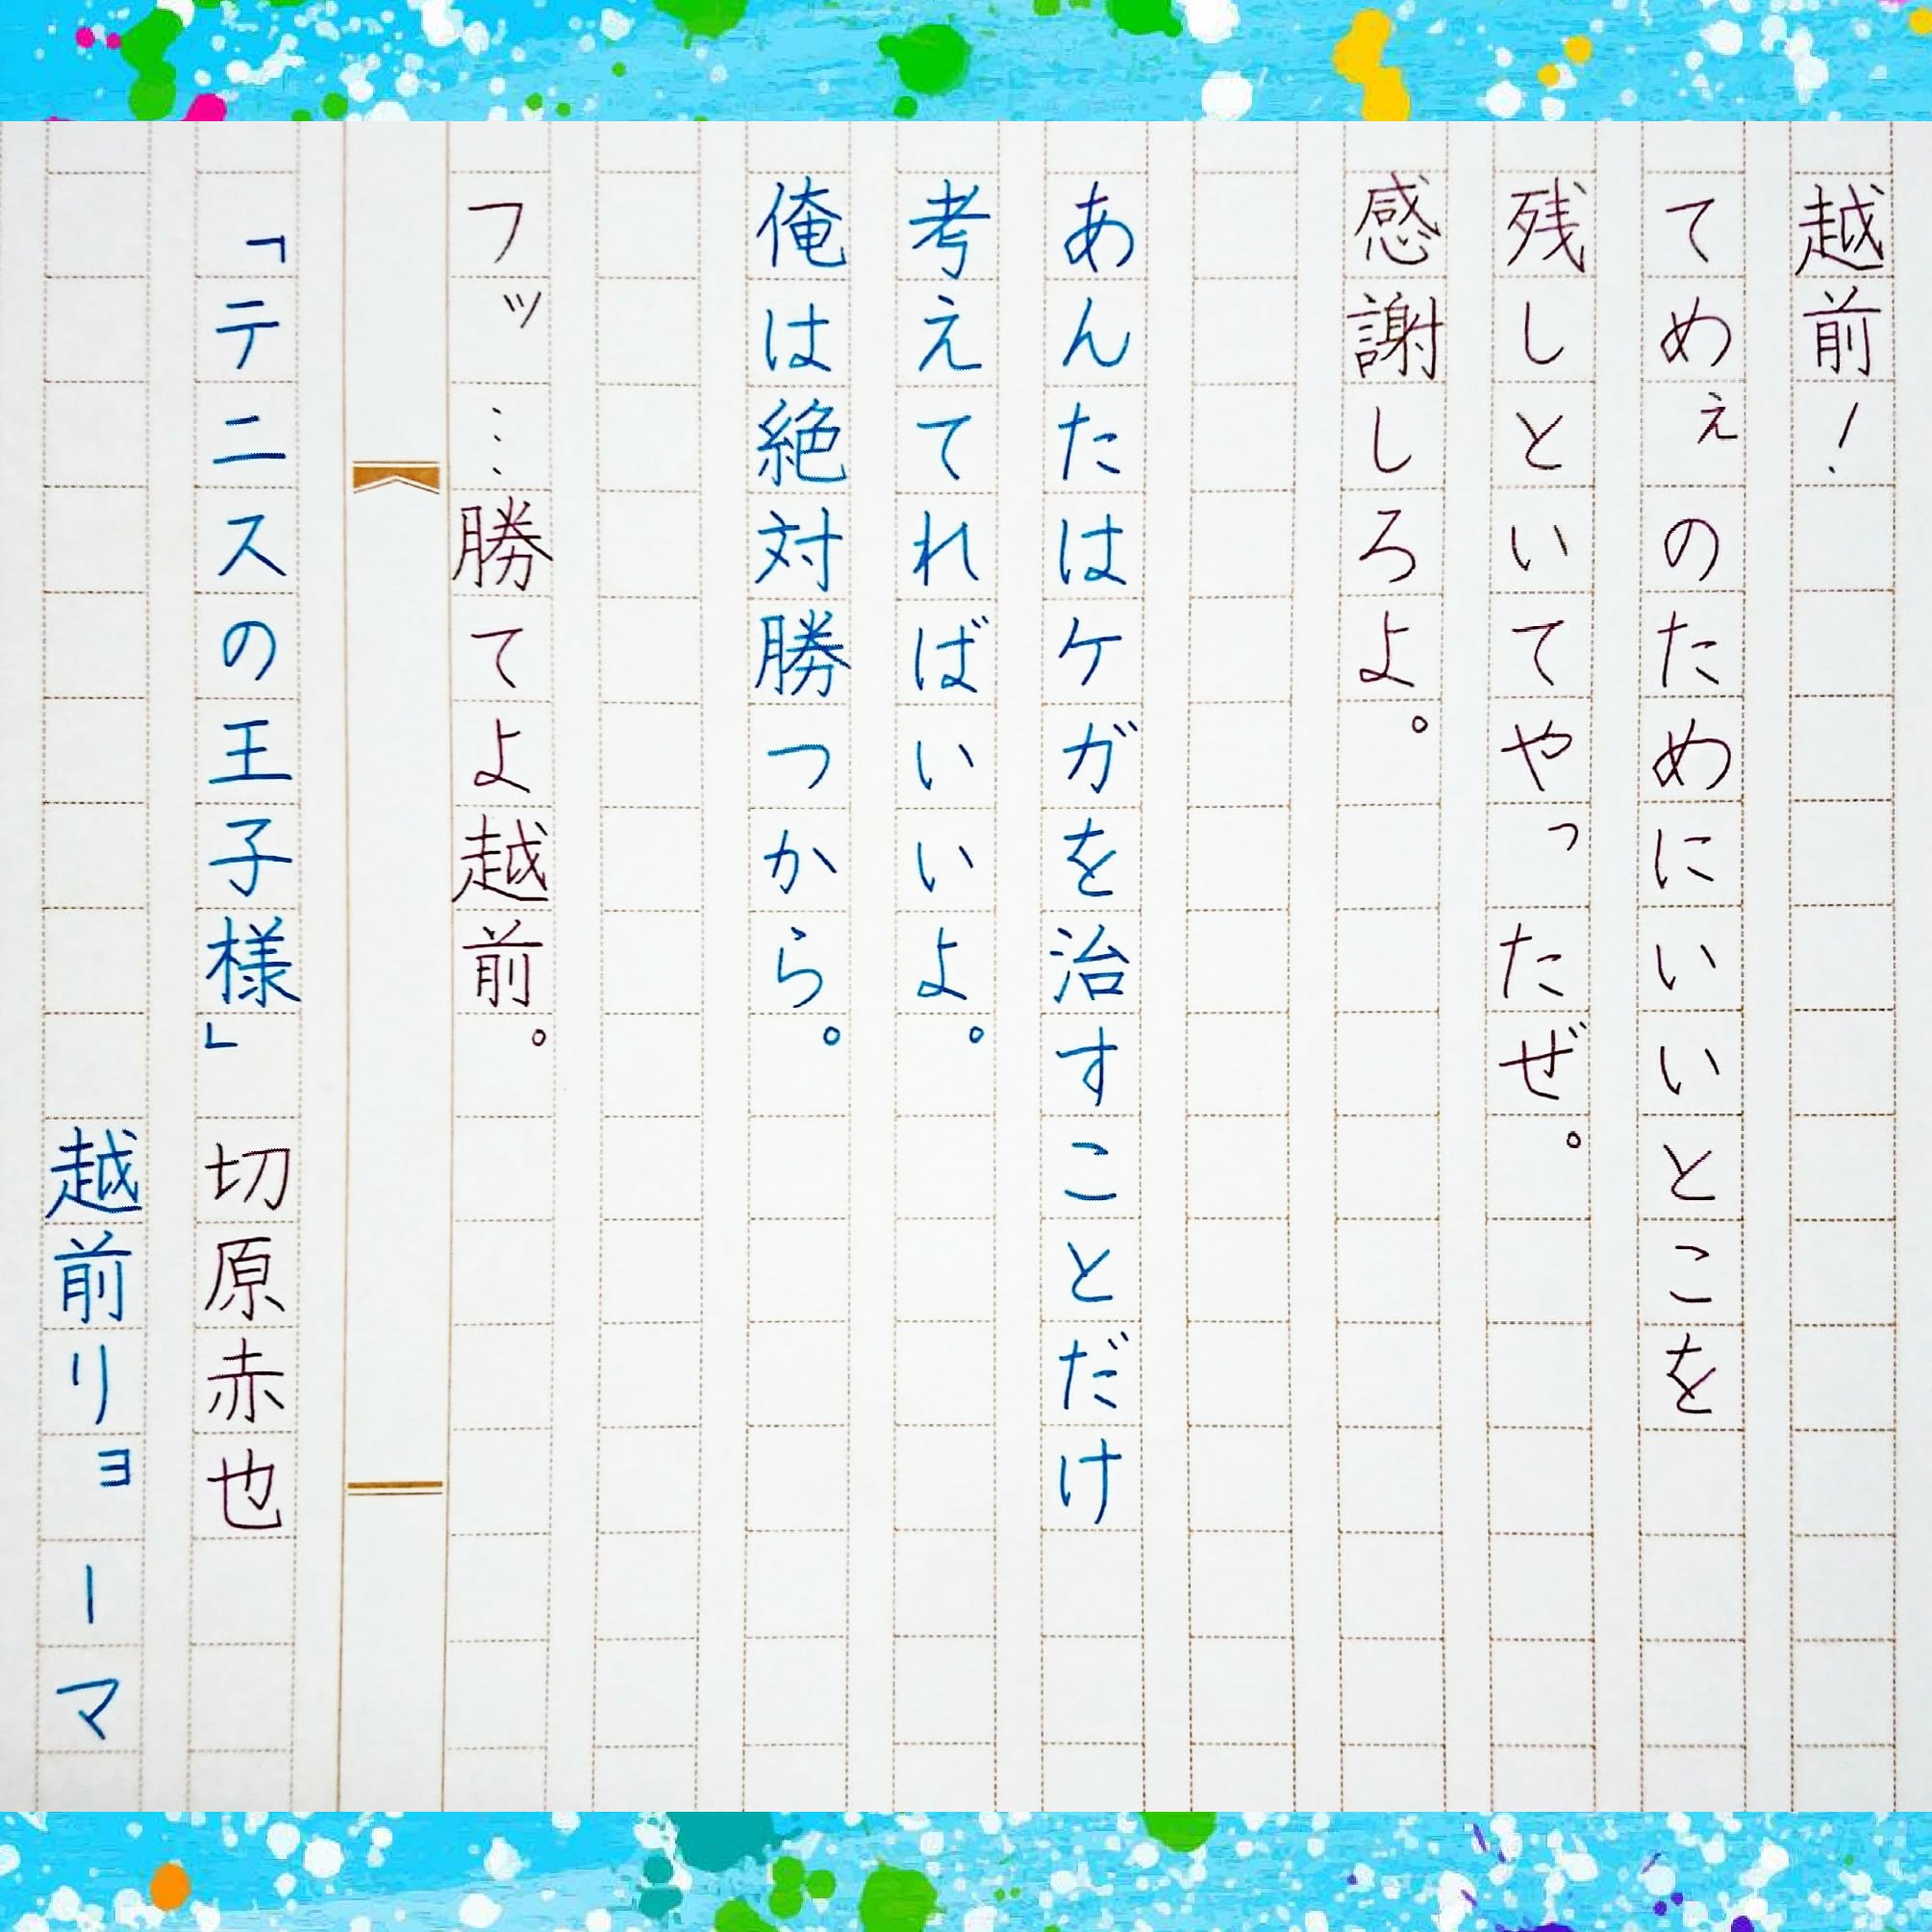 越前！
てめぇのためにいいとこを
残しといてやったぜ。
感謝しろよ。
あんたはケガを治すことだけ
考えてればいいよ。
俺は絶対勝つから。
フッ…勝てよ越前。
「テニスの王子様」 切原赤也
越前リョーマ